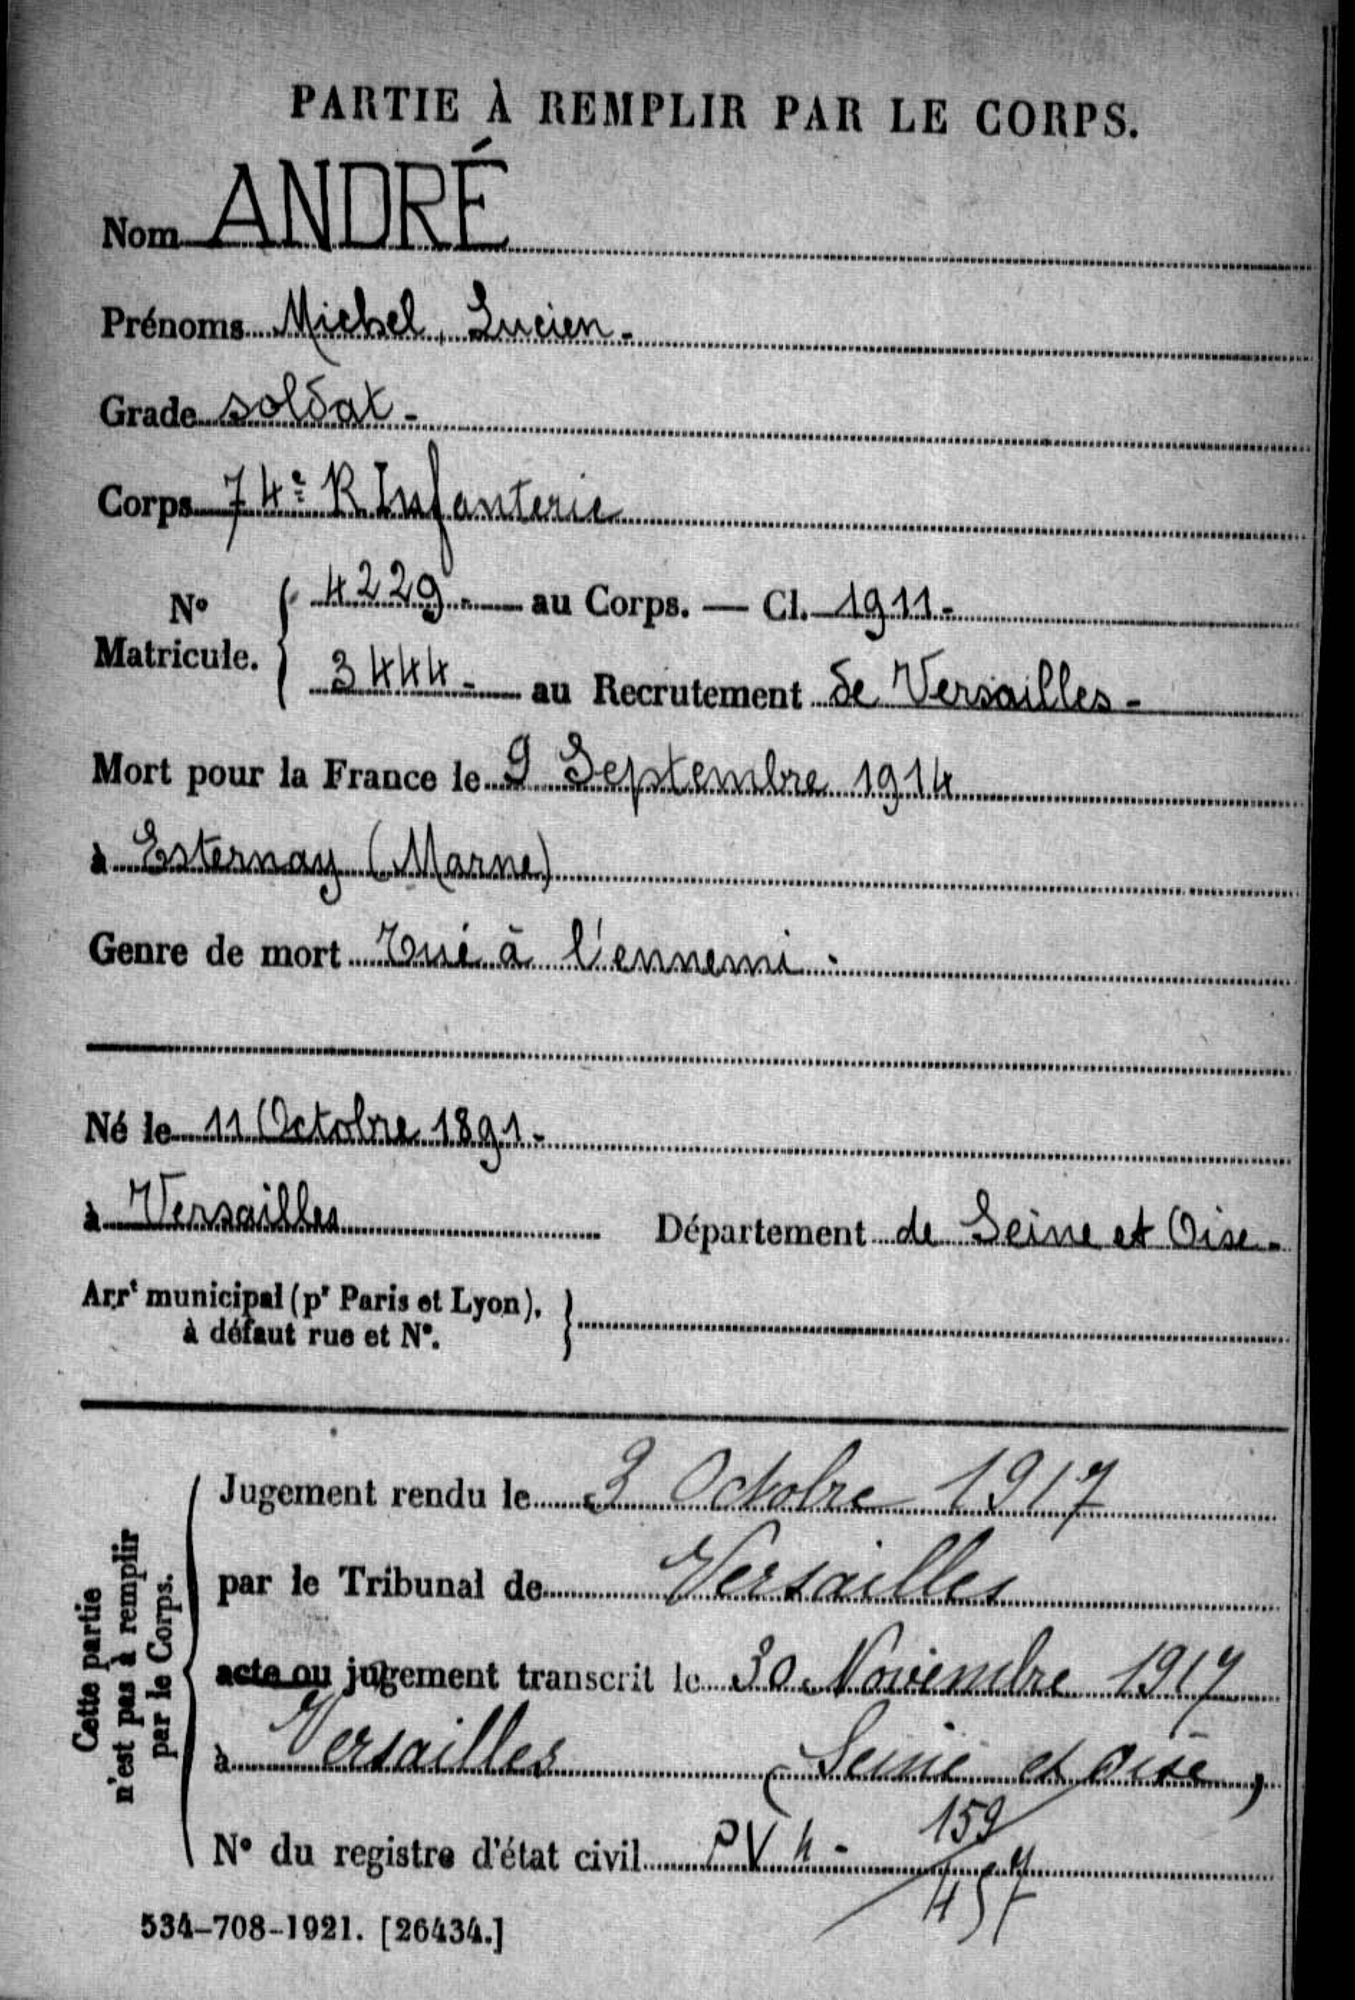 PARTIE À REMPLIR PAR LE CORPS.
Nom ANDRÉ
Prénoms Michel, Lucien-
Grade soldat-
Corps 74e R Infanterie
N° Matricule. { 4229- au Corps. — Cl. 1911-
3444- au Recrutement de Versailles-
Mort pour la France le 9 Septembre 1914
à Esternay (Marne)
Genre de mort Tué à l'ennemi.
Né le 11 Octobre 1891-
à Versailles Département de Seine et Oise-
Arrt municipal (pr Paris et Lyon),
à défaut rue et N°.
Cette partie
n'est pas à remplir
par le Corps.
Jugement rendu le 3 Octobre 1917
par le Tribunal de Versailles
acte ou jugement transcrit le 30 Novembre 1917
à Versailles (Seine et Oise)
N° du registre d'état civil PV 4- 159/457
534-708-1921. [26434.]